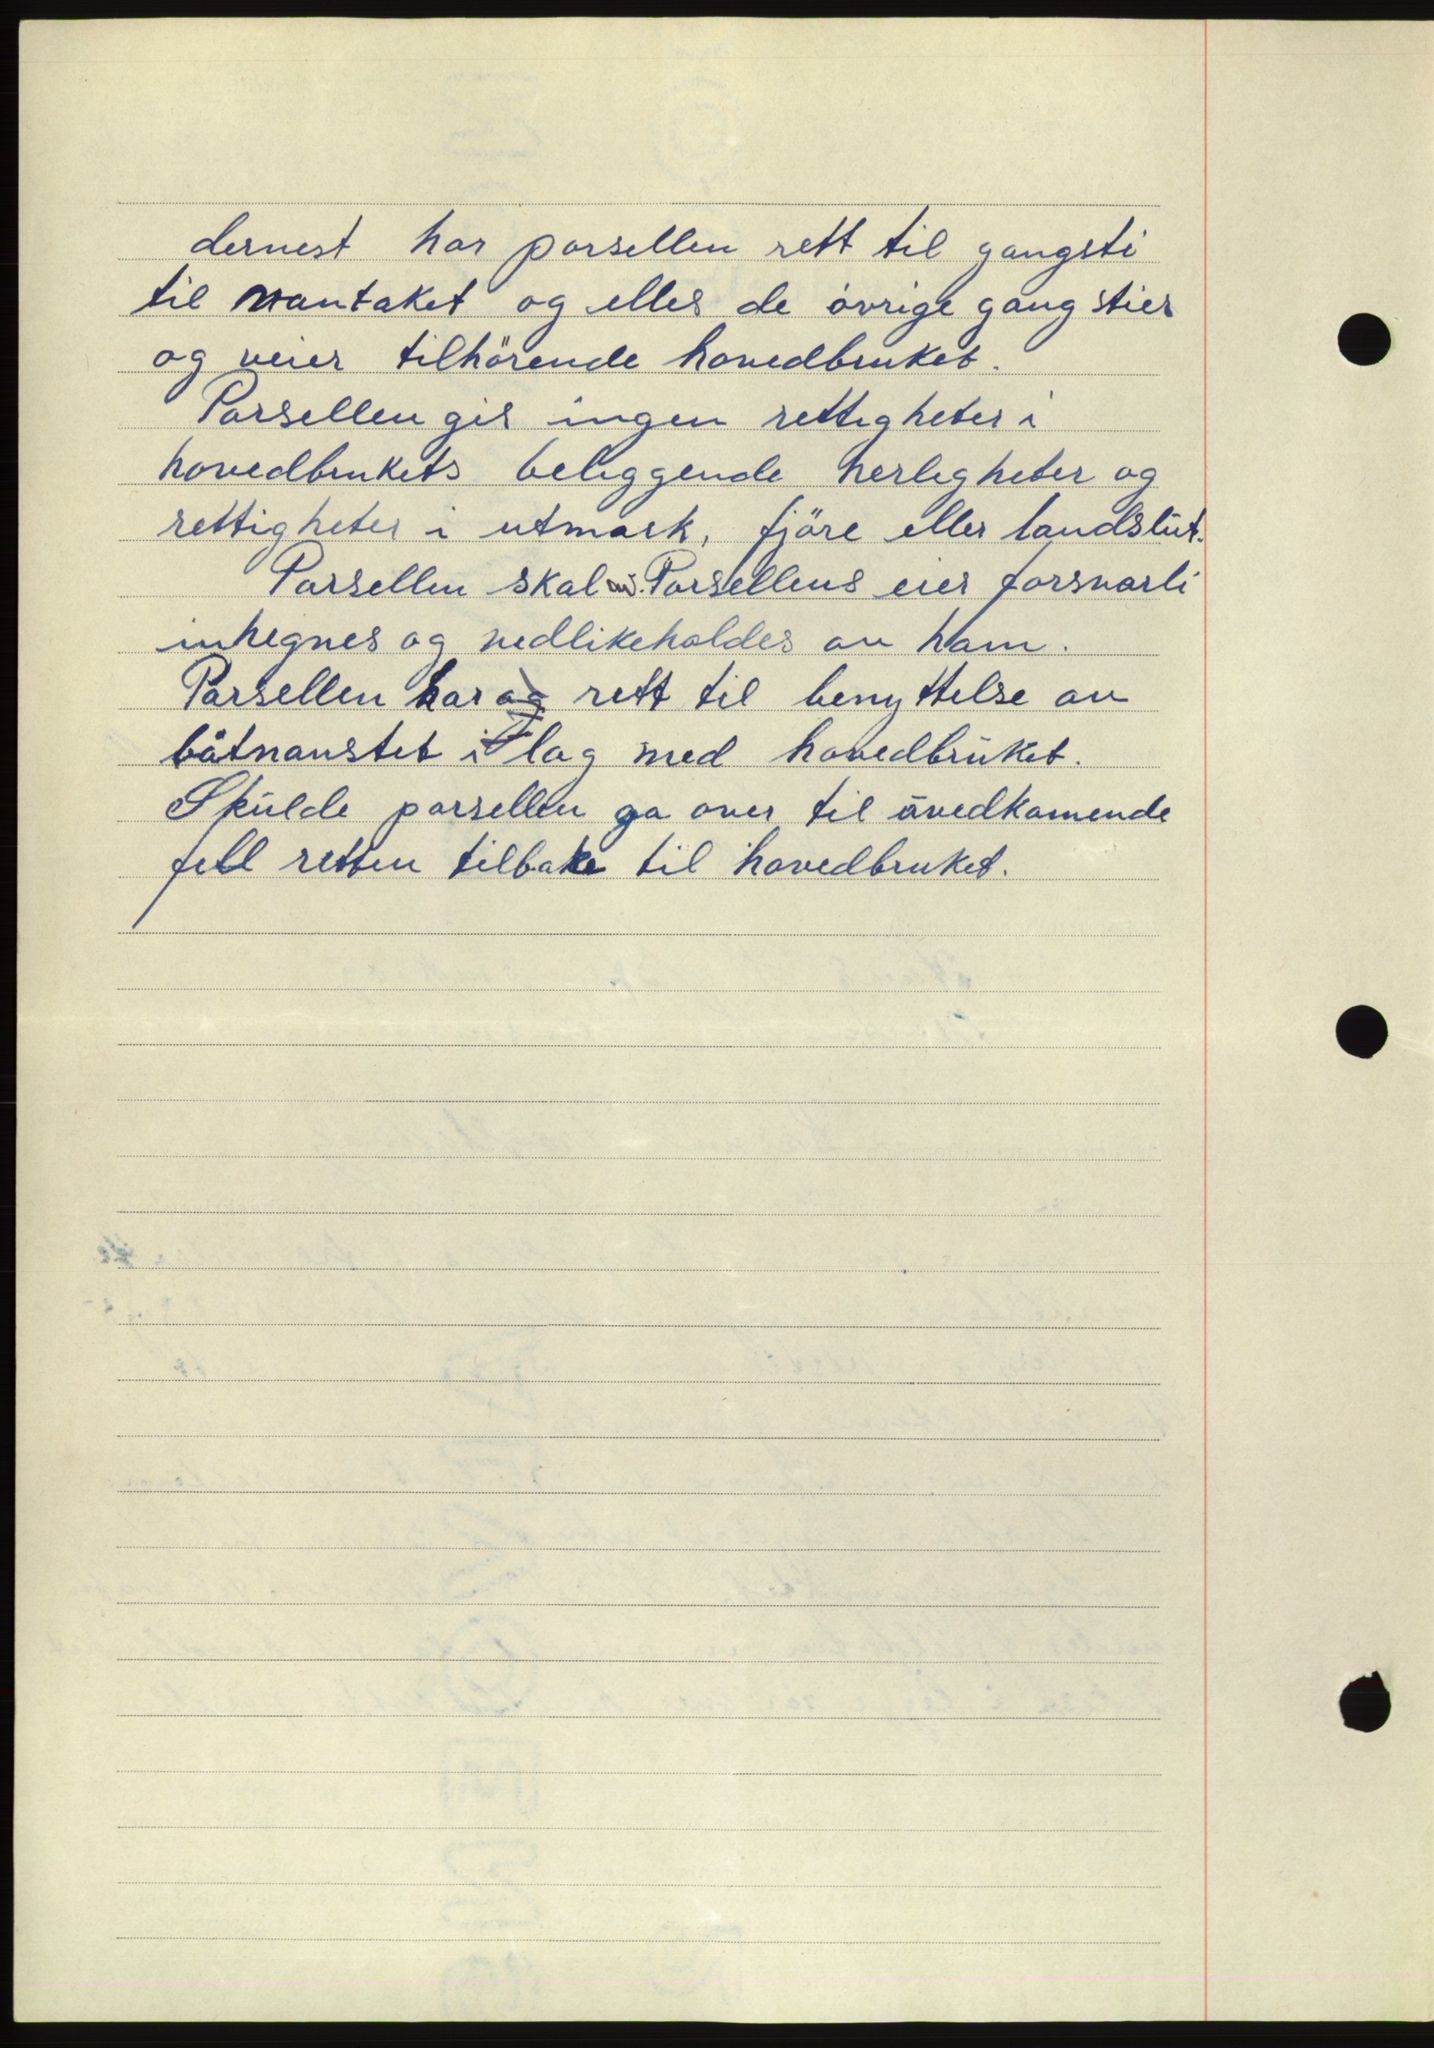 dernest har parsellen rett til gangsti
til vantaket og elles de övrige gang stier
og veier tilhörende hovedbruket.
Parsellen gis ingen rettigheter i
hovedbrukets beliggende herligheter og
rettigheter i utmark, fjöre eller landslut.
Parsellen skal av Parsellens eier forsvarli
inhegnes og vedlikeholdes av ham.
Parsellen har rett til benyttelse av
båtnaustet i lag med hovedbruket.
Skulde parsellen ga over til uvedkomende
fell retten tilbake til hovedbruket.